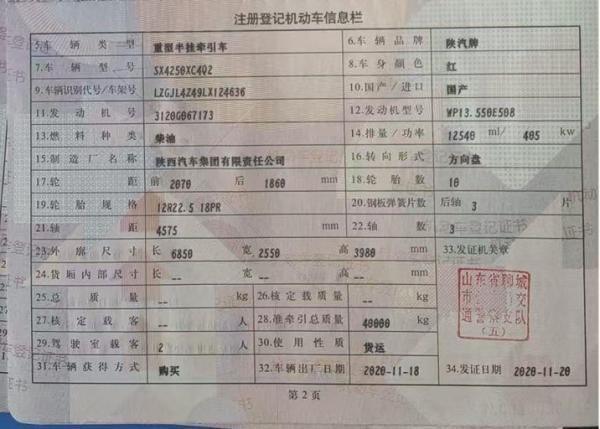 注册登记机动车信息栏
5.车辆类型 重型半挂牵引车 6.车辆品牌 陕汽牌
7.车辆型号 SX4250XC4Q2 8.车身颜色 红
9.车辆识别代号/车架号 LZGJL4Z49LX124636 10.国产/进口 国产
11.发动机号 3120G067173 12.发动机型号 WP13.550E508
13.燃料种类 柴油 14.排量/功率 12540 ml/ 405 kw
15.制造厂名称 陕西汽车集团有限责任公司 16.转向形式 方向盘
17.轮距 前 2070 后 1860 mm 18.轮胎数 10
19.轮胎规格 12R22.5 18PR 20.钢板弹簧片数 后轴 3 片
21.轴距 4575 mm 22.轴数 3
23.外廓尺寸 长 6850 宽 2550 高 3980 mm 33.发证机关章
24.货厢内部尺寸 长 -- 宽 -- 高 -- mm
25.总质量 -- kg 26.核定载质量 -- kg
27.核定载客 -- 人 28.准牵引总质量 40000 kg
29.驾驶室载客 2 人 30.使用性质 货运
31.车辆获得方式 购买 32.车辆出厂日期 2020-11-18 34.发证日期 2020-11-20
山东省聊城
市 交
通警察支队
(五)
第2页